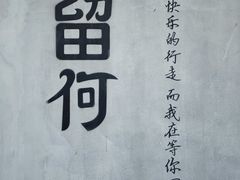 留何
快乐的行走 而我在等你